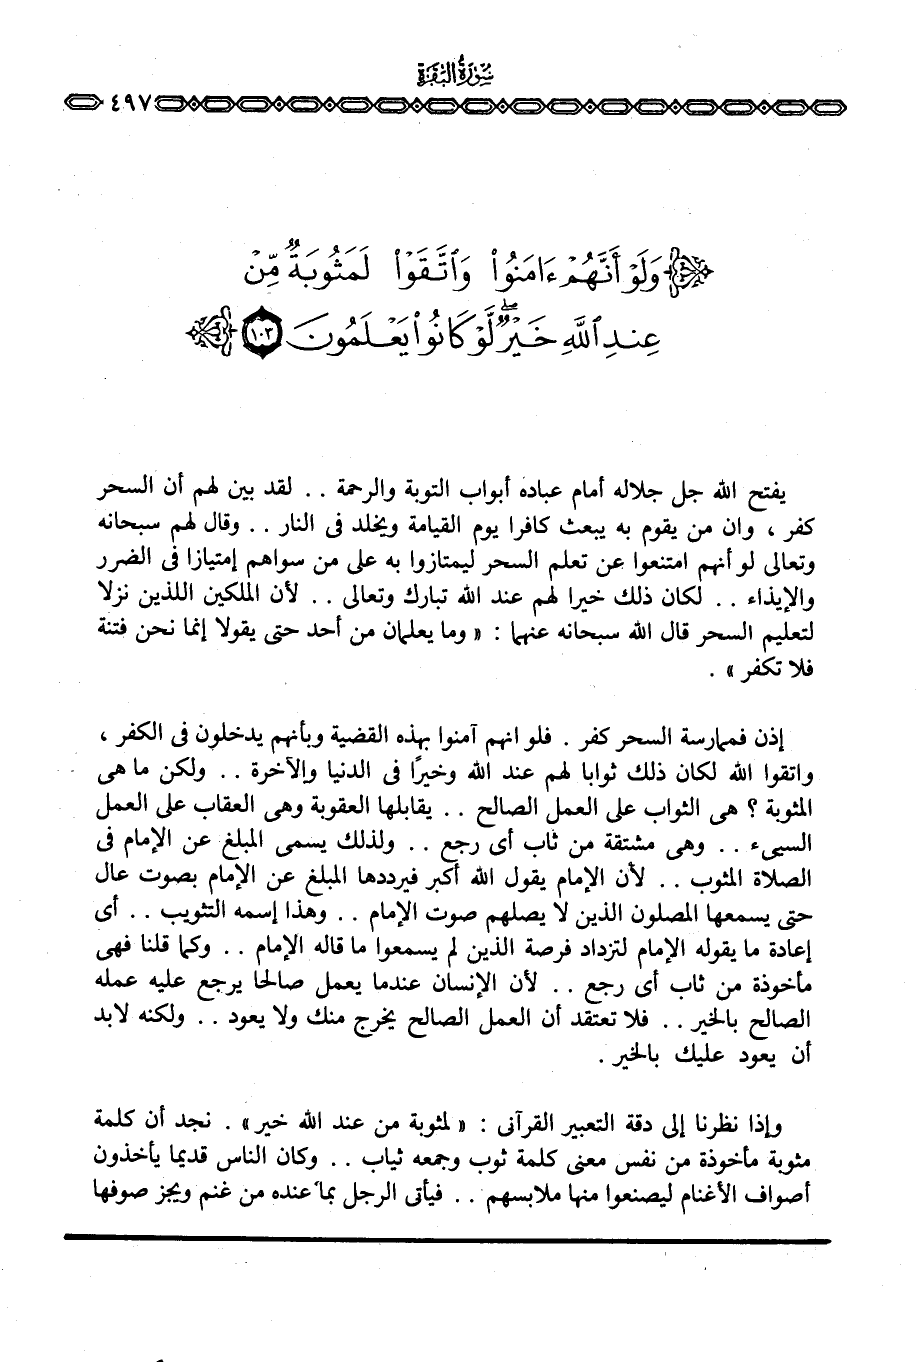 سُورَةُ البَقَرَة
٤٩٧
وَلَوْ أَنَّهُمْ ءَامَنُوا۟ وَٱتَّقَوْا۟ لَمَثُوبَةٌ مِّنْ
عِندِ ٱللَّهِ خَيْرٌ ۖ لَّوْ كَانُوا۟ يَعْلَمُونَ ١٠٣
يفتح الله جل جلاله أمام عباده أبواب التوبة والرحمة . . لقد بين لهم أن السحر
كفر ، وان من يقوم به يبعث كافرا يوم القيامة ويخلد فى النار . . وقال لهم سبحانه
وتعالى لو أنهم امتنعوا عن تعلم السحر ليمتازوا به على من سواهم إمتيازا فى الضرر
والإيذاء . . لكان ذلك خيرا لهم عند الله تبارك وتعالى . . لأن الملكين اللذين نزلا
لتعليم السحر قال الله سبحانه عنهما : « وما يعلمان من أحد حتى يقولا إنما نحن فتنة
فلا تكفر » .
إذن فممارسة السحر كفر . فلو انهم آمنوا بهذه القضية وبأنهم يدخلون فى الكفر ،
واتقوا الله لكان ذلك ثوابا لهم عند الله وخيرًا فى الدنيا والآخرة . . ولكن ما هى
المثوبة ؟ هى الثواب على العمل الصالح . . يقابلها العقوبة وهى العقاب على العمل
السيىء . . وهى مشتقة من ثاب أى رجع . . ولذلك يسمى المبلغ عن الإمام فى
الصلاة المثوب . . لأن الإمام يقول الله أكبر فيرددها المبلغ عن الإمام بصوت عال
حتى يسمعها المصلون الذين لا يصلهم صوت الإمام . . وهذا إسمه التثويب . . أى
إعادة ما يقوله الإمام لتزداد فرصة الذين لم يسمعوا ما قاله الإمام . . وكما قلنا فهى
مأخوذة من ثاب أى رجع . . لأن الإنسان عندما يعمل صالحا يرجع عليه عمله
الصالح بالخير . . فلا تعتقد أن العمل الصالح يخرج منك ولا يعود . . ولكنه لابد
أن يعود عليك بالخير .
وإذا نظرنا إلى دقة التعبير القرآنى : « لمثوبة من عند الله خير » . نجد أن كلمة
مثوبة مأخوذة من نفس معنى كلمة ثوب وجمعه ثياب . . وكان الناس قديما يأخذون
أصواف الأغنام ليصنعوا منها ملابسهم . . فيأتى الرجل بما عنده من غنم ويجز صوفها